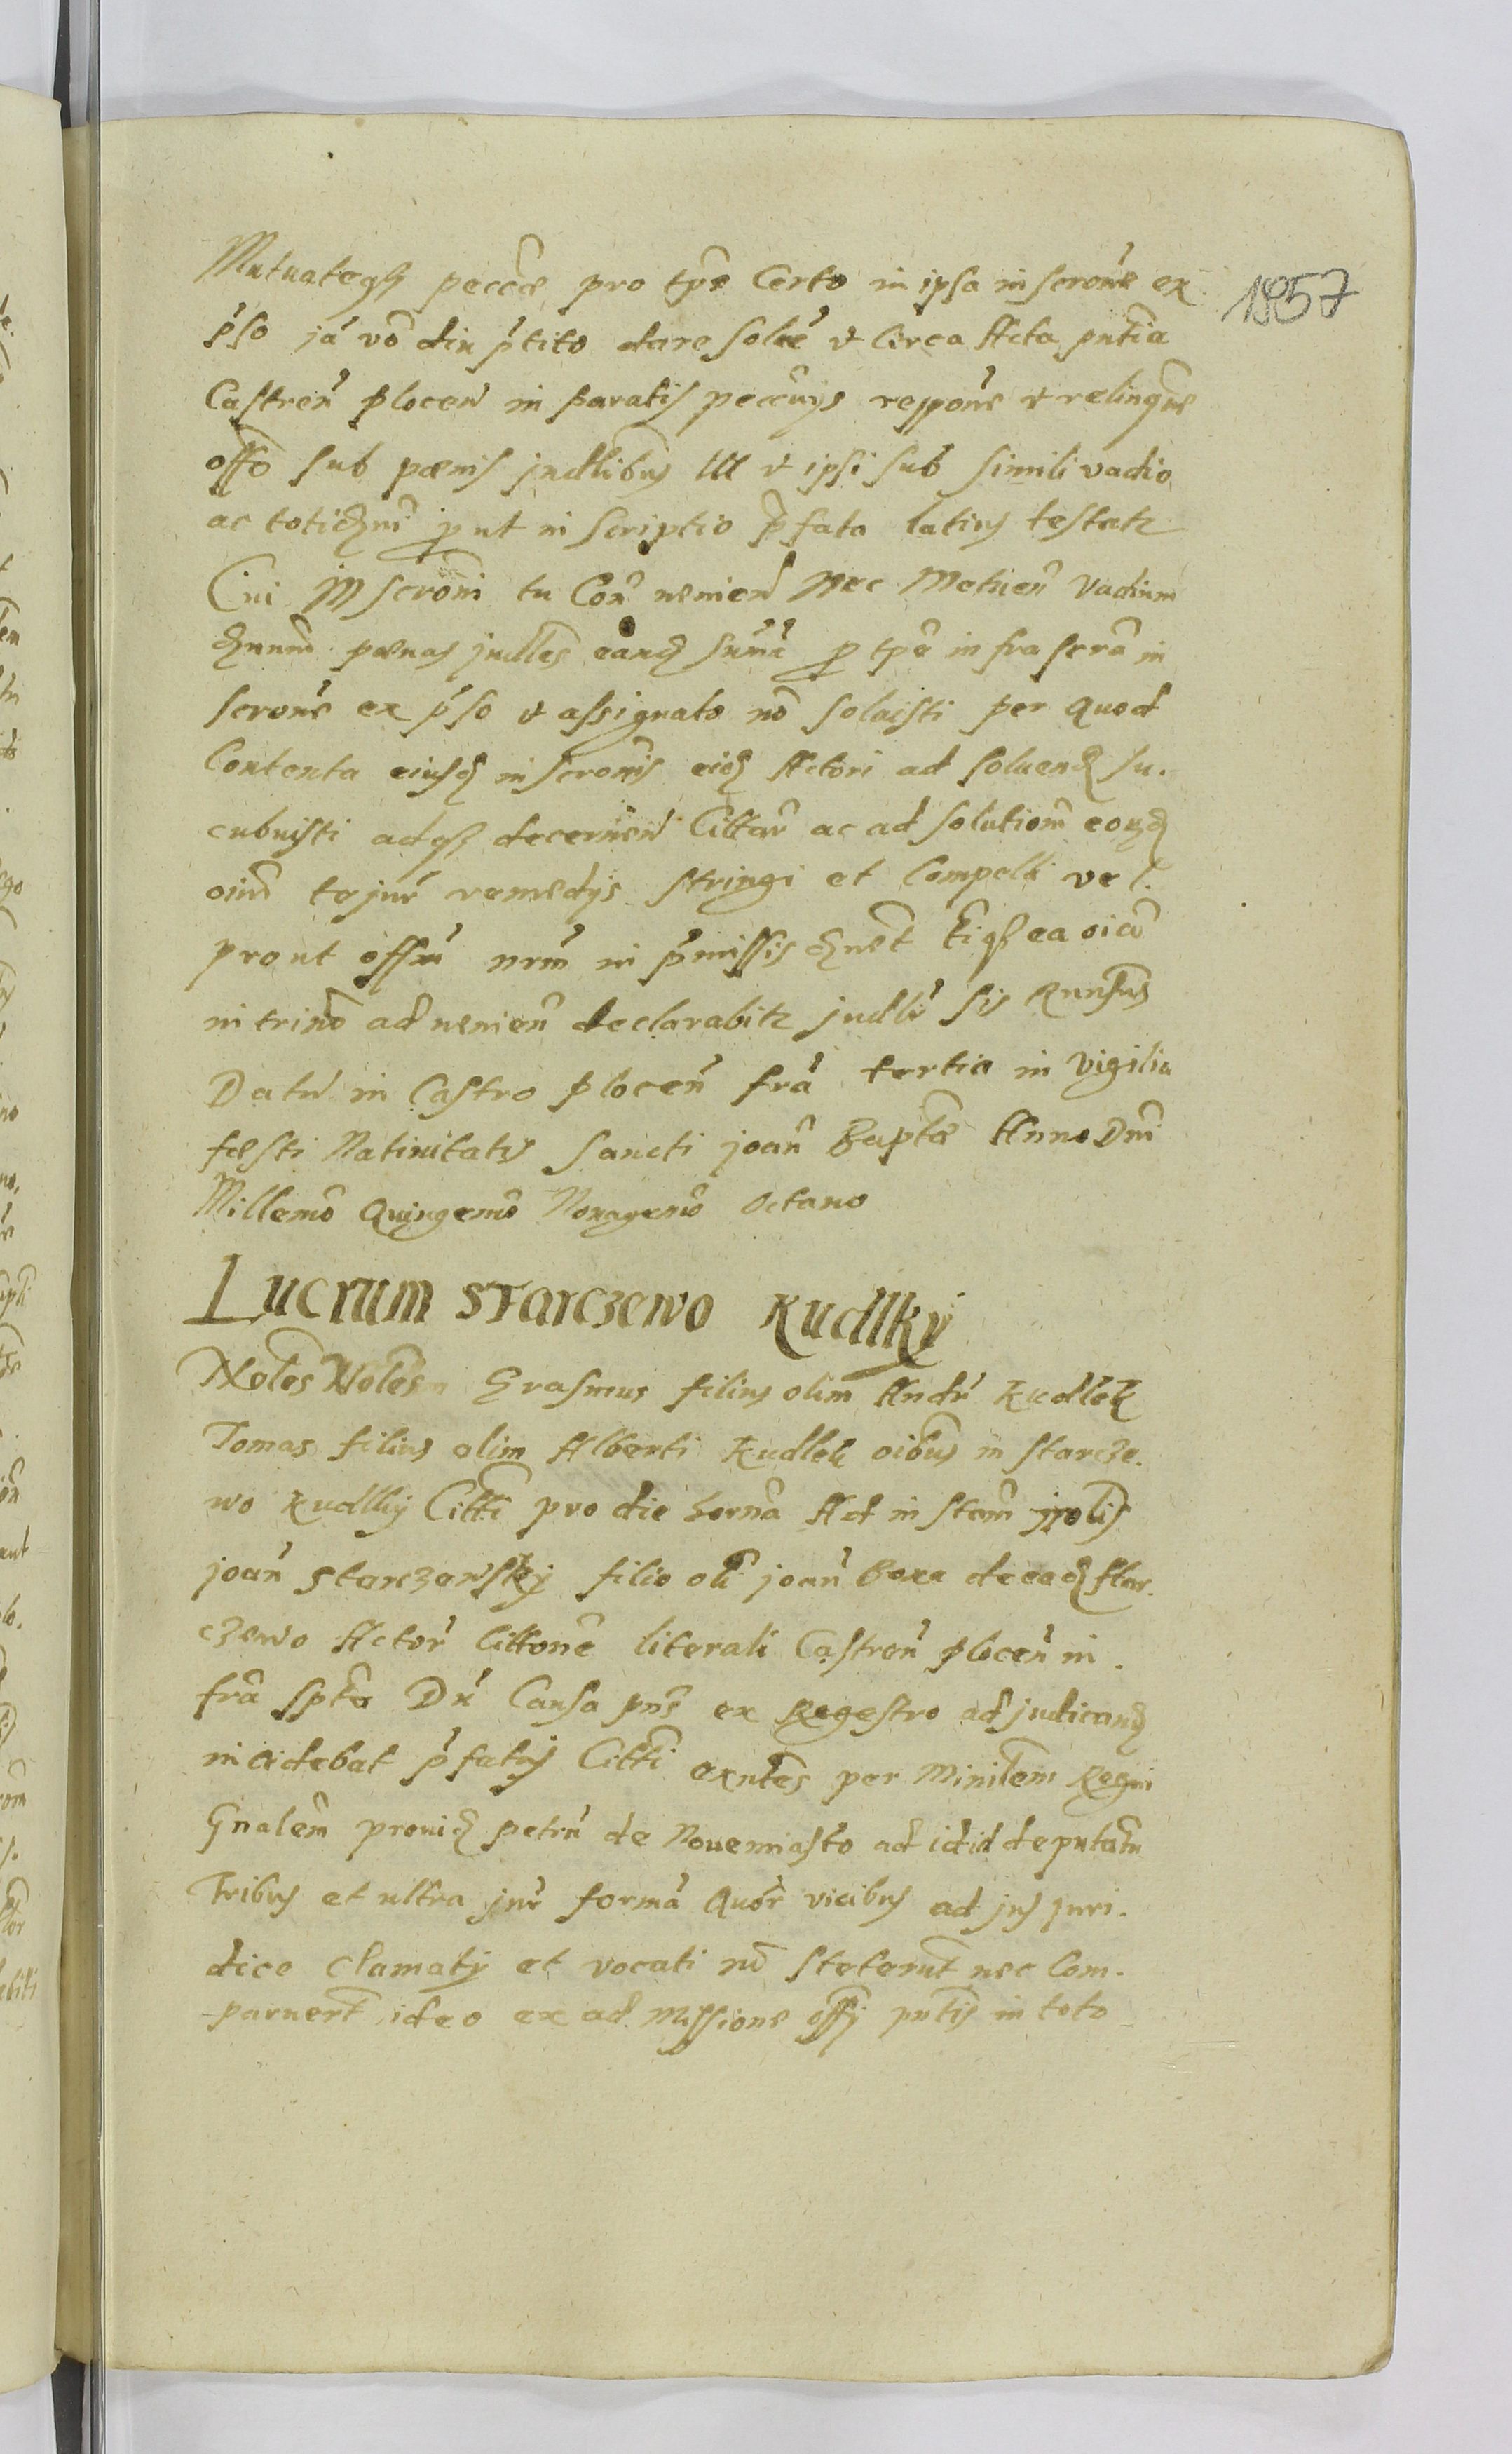 Mutuateqz peccæ pro tpe Certo in ipsa inscrone ex
1857
pso ja vo diu ptito dare solve & Circa Acta pntia
Castren plocen in paratis peccuijs reppone & relinqne
offo sub pænis judlibus lll & ipsi sub simili vadio
ac totidzm put in scriptio pfata latius testatr
Cui Inscroni tu Con nenien nec Metuen Vadium
pænas judles eandz suma p tpe infra scra in
scrone ex pso & assignato no solvisti per quod
Contenta eiusdz inscronis eidz Actori ad solvendz su.
cubuisti adqz decernen Cittar ac ad solutiom eorudz
oium te jure remedijs stringi et Compelli vel.
prout offm nrm in pmissis ea oia
in trino ad nenien declarabitr judlr sis Runsurus
Datu in Castro plocen fra tertia in vigilia
festi Nativitatis Sancti joan Baptæ Anno Dni
Millemo Quingemo Nonagemo Octavo
Lucrum Starczewo Kudlky
Noles Noles Erasmus filius olim Andr Kudlek
Tomas filius olim Alberti Kudlek oibus in starcze.
wo Kudlky Citti pro die horna Ad in stam
joan Starczewsky filio oli joan Boxa de eadz star.
czewo Actor Cittone literali Castren plocen in.
fra spta Dr Causa pns ex Regestro ad judicandz
incidebat pfatus Citti exntes per Minilem Regni
Gnalem providz petru de Novemiasto ad id deputatu
Tribus et ultra jur forma quor vicibus ad jus juri.
dice Clamatij et vocati no steterunt nec Com.
paruert ideo ex ad missione offij pntis in toto